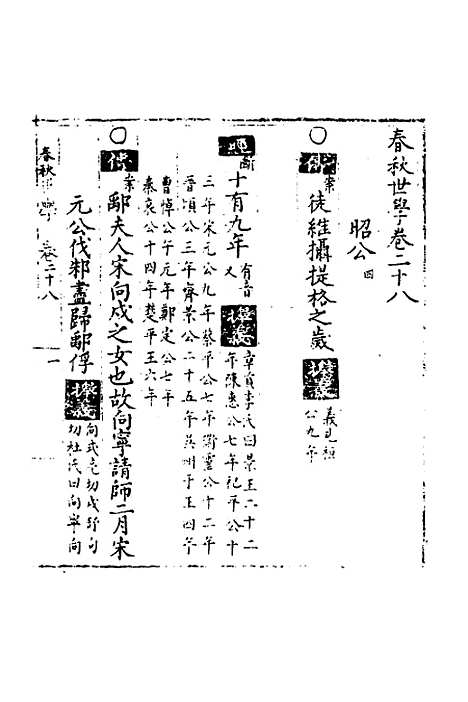 春秋世學卷二十八
昭公 四
○傳案 徒維攝提格之歲 義見桓
公九年
經斷 十有九年 有音
又 章貢李氏曰景王二十二
年陳惠公七年杞平公十
三年宋元公九年蔡平公七年衞靈公十二年
晉頃公三年齊景公二十五年吳州于王四年
曹悼公午元年鄭定公七年
秦哀公十四年楚平王六年
○傳案 鄅夫人宋向戌之女也故向寧請師二月宋
元公伐邾盡歸鄅俘 向式亮切戌舒句
切杜氏曰向寧向
春秋 學 卷二十八 一